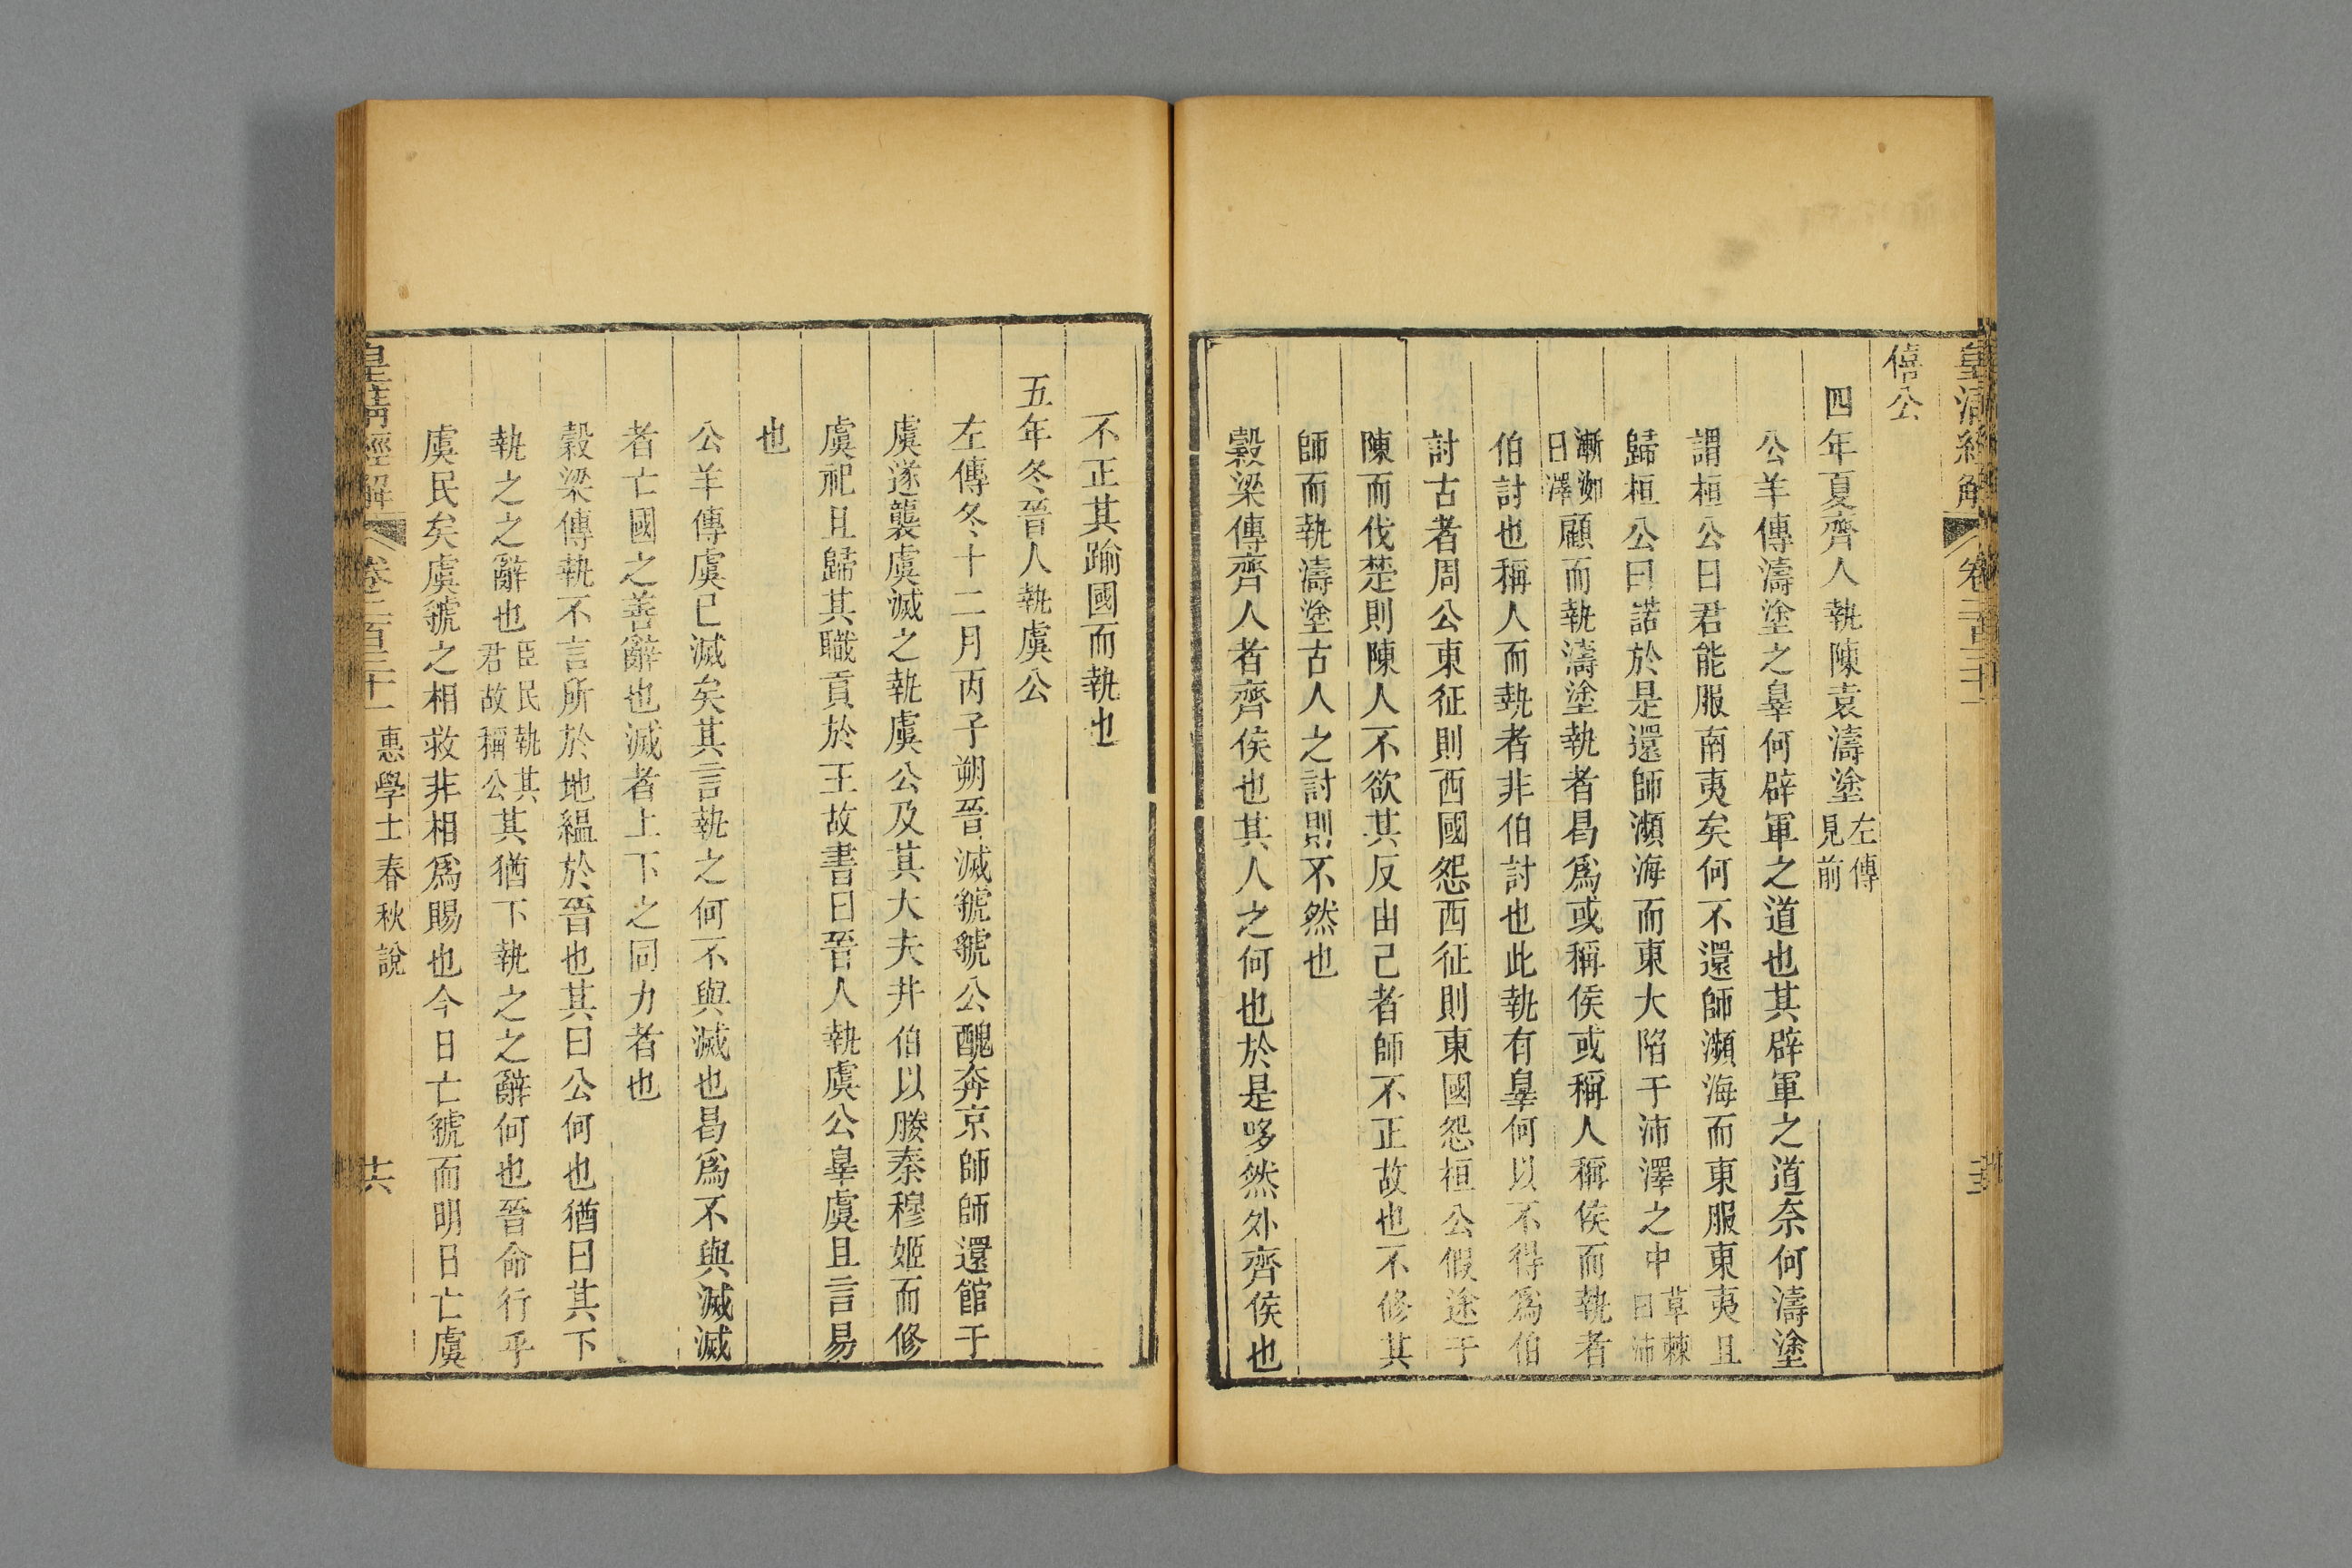 皇清經解 卷二百三十一
僖公
四年夏齊人執陳袁濤塗左傳見前
公羊傳濤塗之辠何辟軍之道也其辟軍之道奈何濤塗
謂桓公曰君能服南夷矣何不還師濱海而東服東夷且
歸桓公曰諾於是還師濱海而東大陷于沛澤之中草棘曰沛
漸洳曰澤顧而執濤塗執者曷爲或稱侯或稱人稱侯而執者
伯討也稱人而執者非伯討也此執有辠何以不得爲伯
討古者周公東征則西國怨西征則東國怨桓公假途于
陳而伐楚則陳人不欲其反由己者師不正故也不修其
師而執濤塗古人之討則不然也
穀梁傳齊人者齊侯也其人之何也於是哆然外齊侯也
不正其踰國而執也
五年冬晉人執虞公
左傳冬十二月丙子朔晉滅虢虢公醜奔京師師還館于
虞遂襲虞滅之執虞公及其大夫井伯以媵秦穆姬而修
虞祀且歸其職貢於王故書曰晉人執虞公辠虞且言易
也
公羊傳虞已滅矣其言執之何不與滅也曷爲不與滅滅
者亡國之善辭也滅者上下之同力者也
穀梁傳執不言所於地縕於晉也其曰公何也猶曰其下
執之之辭也臣民執其君故稱公其猶下執之之辭何也晉命行乎
虞民矣虞虢之相救非相爲賜也今日亡虢而明日亡虞
皇清經解 卷二百三十一 惠學士春秋說 十六